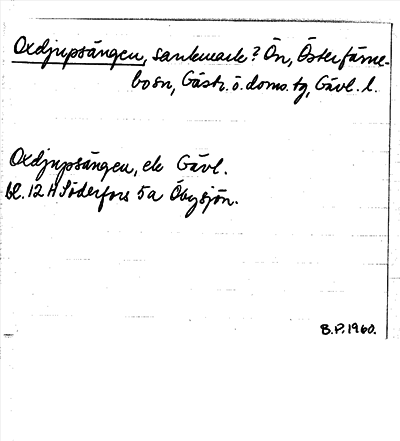 Oxdjupsängen, sankmark? Ön, Österfärne-
bo sn, Gästr. ö. doms. tg, Gävl. l.
Oxdjupsängen, ek Gävl.
bl. 12 H Söderfors 5a Öbysjön.
B.P. 1960.